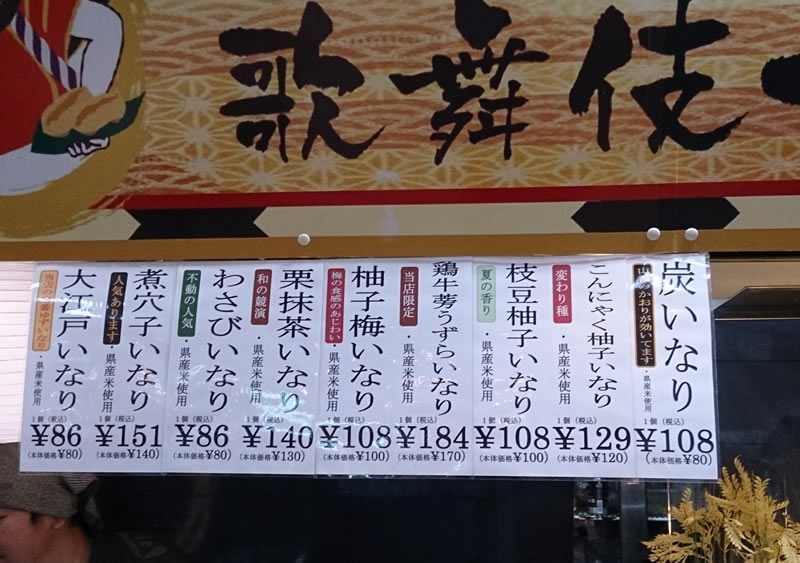 歌舞伎
炭いなり
のかおりが効いてます
・県産米使用
1個(税込)
¥108
(本体価格¥80)
こんにゃく柚子いなり
変わり種
・県産米使用
1個(税込)
¥129
(本体価格¥120)
枝豆柚子いなり
夏の香り
・県産米使用
1個(税込)
¥108
(本体価格¥100)
鶏牛蒡うずらいなり
当店限定
・県産米使用
1個(税込)
¥184
(本体価格¥170)
柚子梅いなり
梅の食感のあじわい
・県産米使用
1個(税込)
¥108
(本体価格¥100)
栗抹茶いなり
和の競演
・県産米使用
1個(税込)
¥140
(本体価格¥130)
わさびいなり
不動の人気
・県産米使用
1個(税込)
¥86
(本体価格¥80)
煮穴子いなり
人気あります
・県産米使用
1個(税込)
¥151
(本体価格¥140)
大江戸いなり
・県産米使用
1個(税込)
¥86
(本体価格¥80)